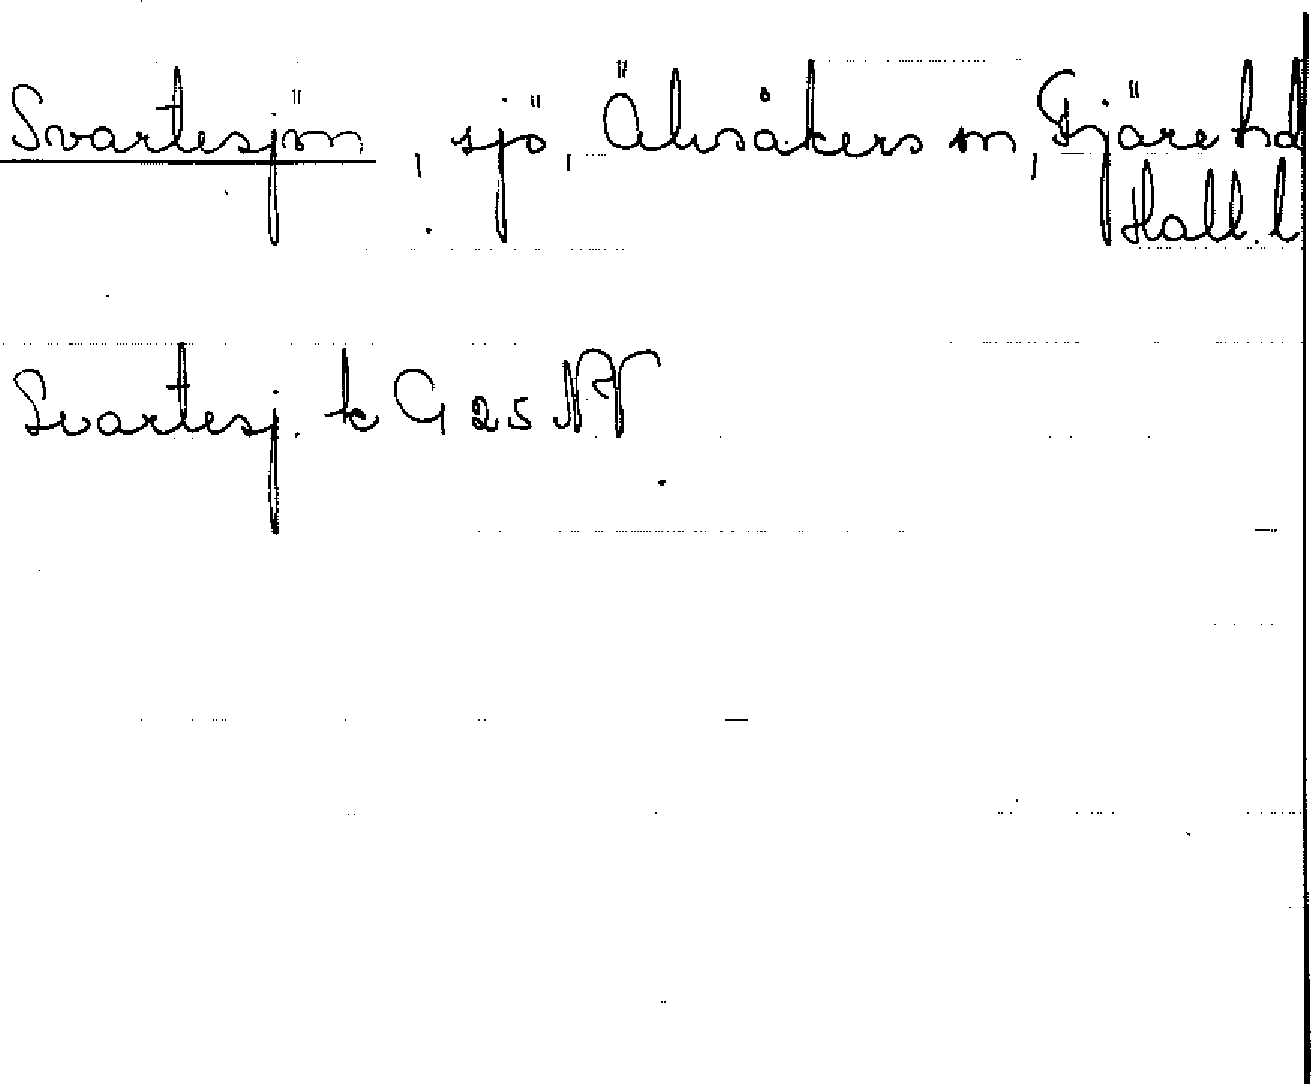 Svartesjön, sjö, Älvsåkers sn, Fjäre hd
Hall. l
Svartesj. k G 25 NV